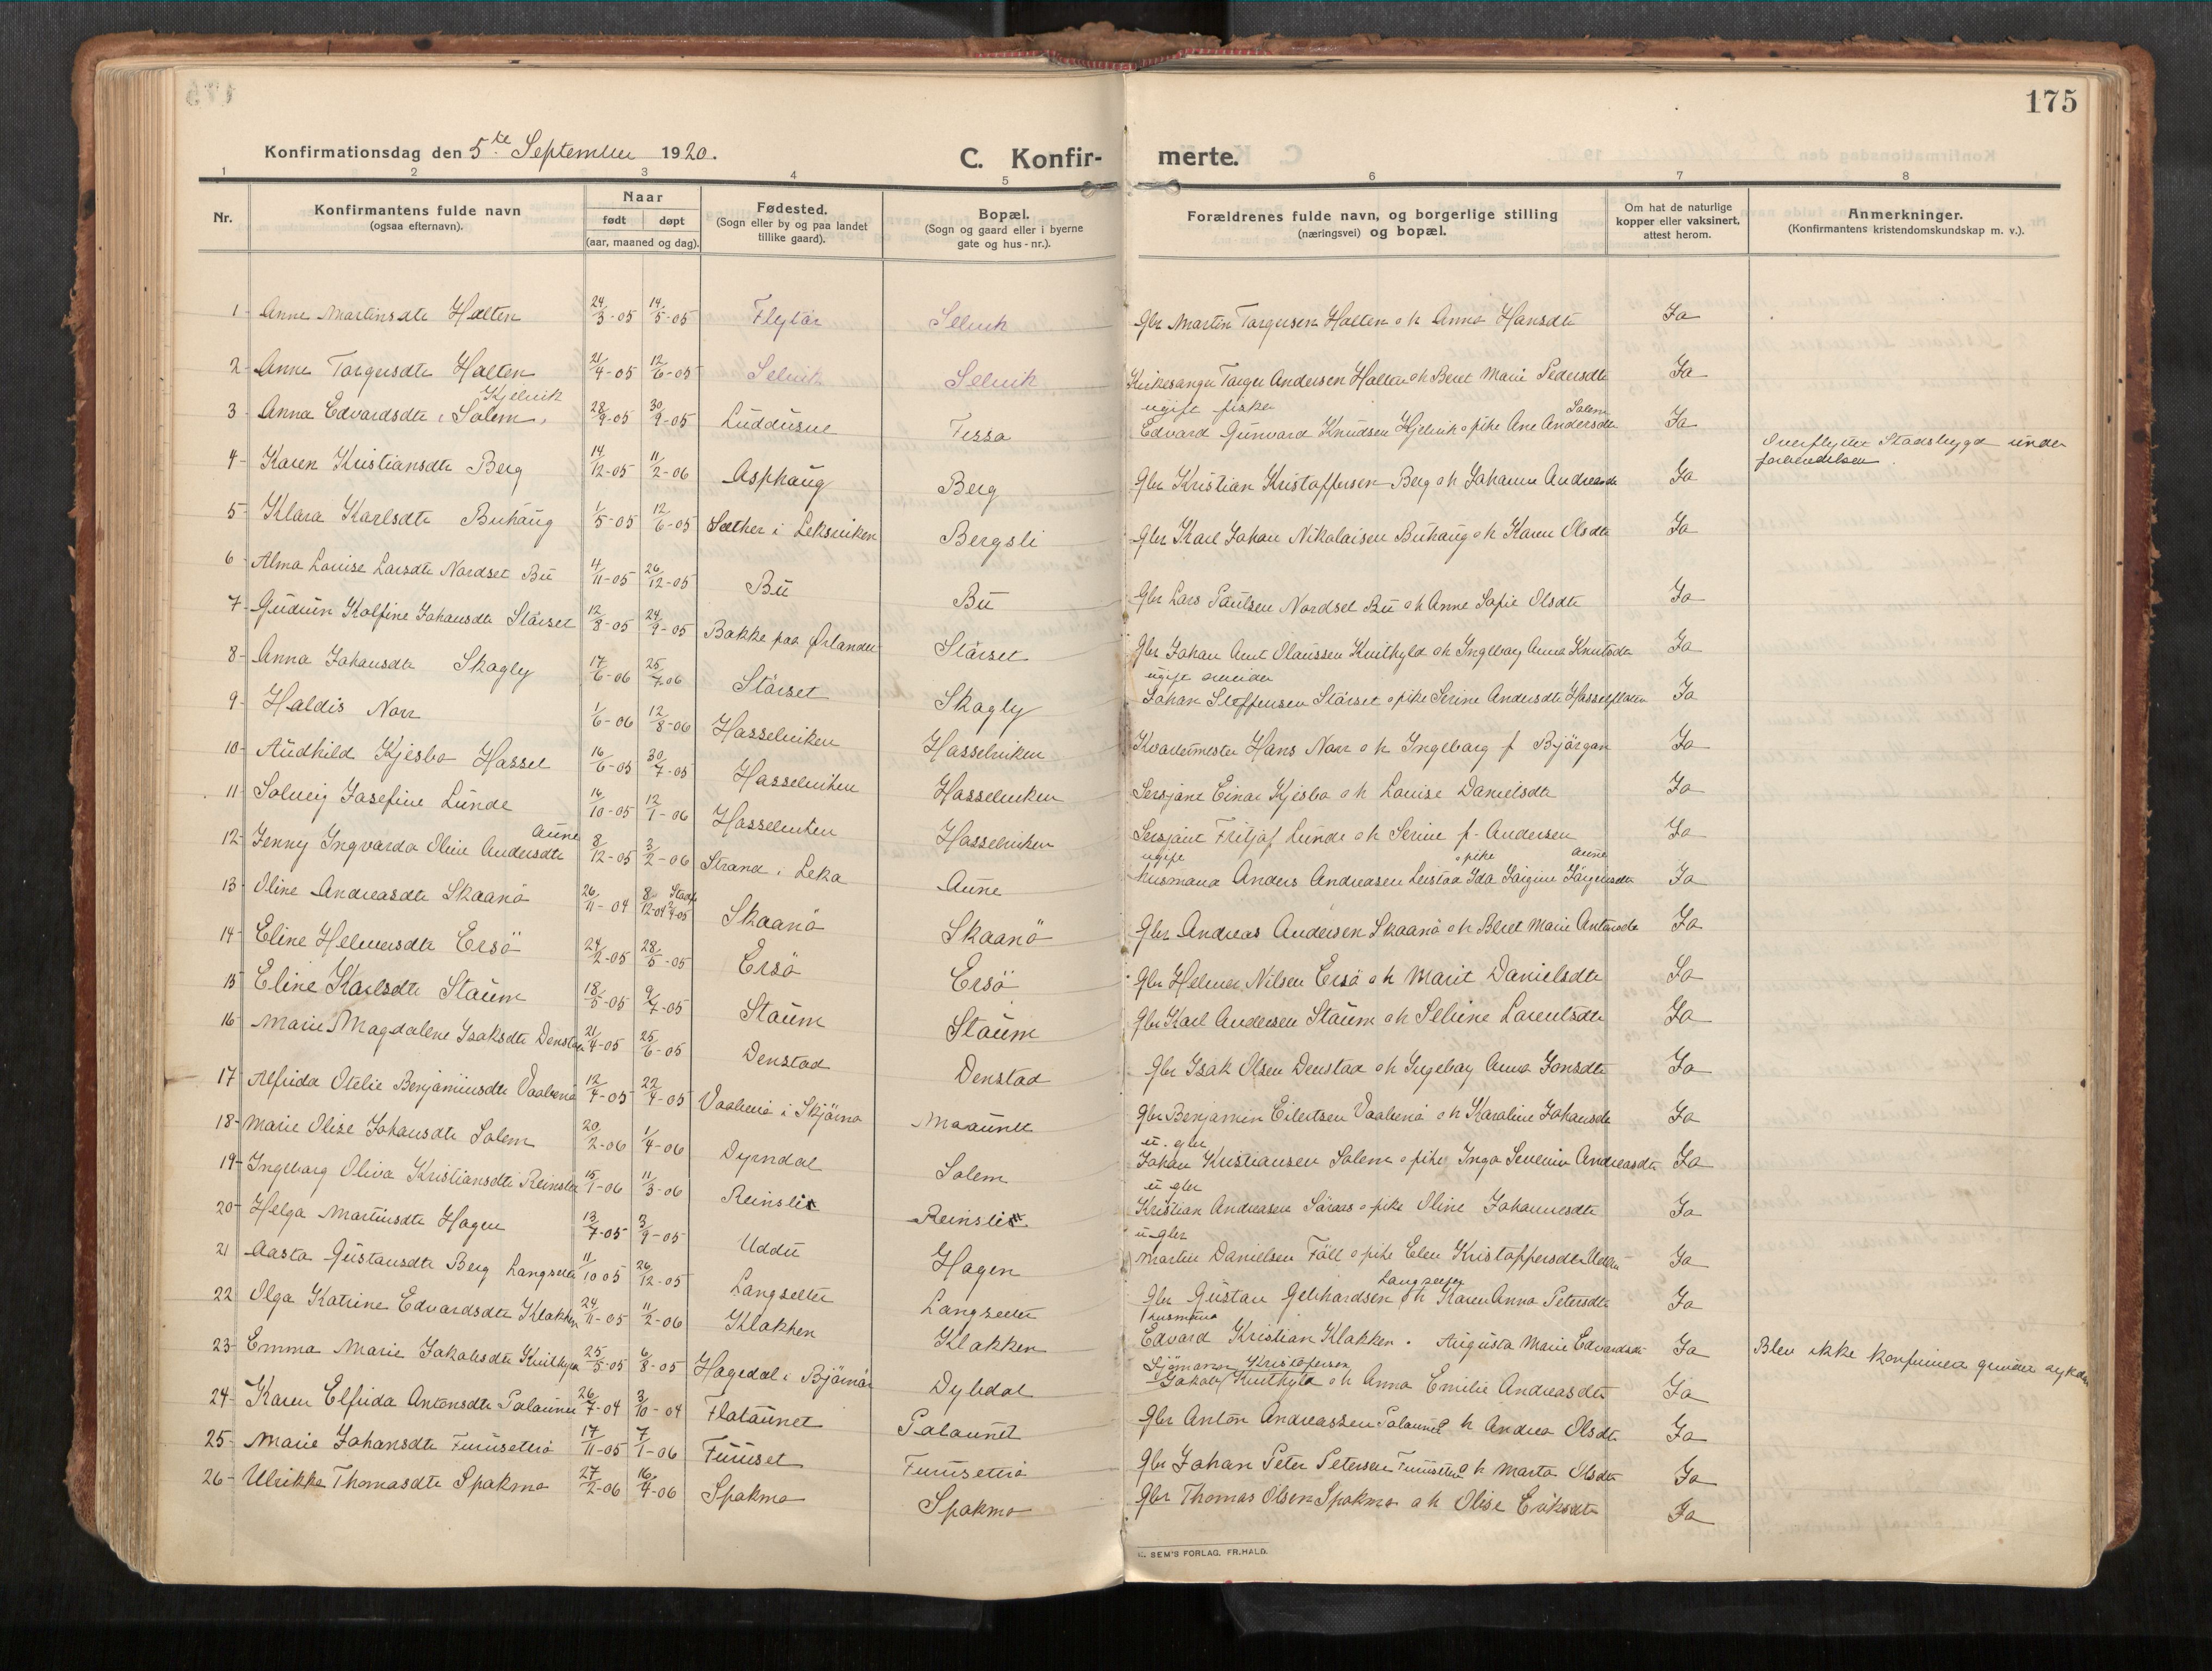 175
Konfirmationsdag den 5te September 1920.
C. Konfir- merte.
1 2 3 4 5 6 7 8
Nr.
Konfirmantens fulde navn
(ogsaa efternavn).
Naar
født døpt
(aar, maaned og dag).
Fødested.
(Sogn eller by og paa landet
tillike gaard).
Bopæl.
(Sogn og gaard eller i byerne
gate og hus-nr.).
Forældrenes fulde navn, og borgerlige stilling
(næringsvei) og bopæl.
Om hat de naturlige
kopper eller vaksinert,
attest herom.
Anmerkninger.
(Konfirmantens kristendomskundskap m. v.).
1 Anne Martinsdtr Halten 24/3-05 14/5-05 Flytär Selvik Gbr Martin Torgersen Halten o h Anna Hansdtr Ja
2 Anne Torgersdtr Halten 21/4-05 12/6-05 Selvik Selvik Kirkesanger Torger Andersen Halten o h Beret Marie Pedersdtr Ja
Kjelvik ugift fisker Salem
3 Anna Edvardsdtr Salem 28/9-05 30/9-05 Fessa Edvard Gunvard Knudsen Kjelvik o pike Ane Andersdtr Ja
4 Karen Kristiansdtr Berg 14/12-05 11/2-06 Asphaug Berg Gbr Kristian Kristoffersen Berg o h Johanna Andreasdtr Ja Overflyttet Stadsbygd under
forberedelsen
5 Klara Karlsdtr Buhaug 1/5-05 12/6-05 Sæther i Leksviken Bergsli Gbr Karl Johan Nikolaisen Buhaug o h Karen Olsdtr Ja
6 Alma Louise Larsdtr Nordset Bu 4/11-05 26/12-05 Bu Bu Gbr Lars Paulsen Nordset Bu o h Anne Sofie Olsdtr Ja
7 Gudrun Kolfine Johansdtr Størset 12/8-05 24/9-05 Bakke paa Ørlandet Størset Gbr Johan Arnt Olaussen Kvithyld o h Ingeborg Anna Knutsdtr Ja
ugift arbeider
8 Anna Johansdtr Skogly 17/6-06 25/7-06 Størset Skogly Johan Steffensen Størset o pike Serine Andersdtr Hasselflaten Ja
9 Haldis Norr 1/6-06 12/8-06 Hasselviken Hasselviken Kvartermester Hans Norr o h Ingeborg f Bjørgan Ja
10 Audhild Kjesbo Hassel 16/6-05 30/7-05 Hasselviken Hasselviken Sersjant Einar Kjesbo o h Louise Danielsdtr Ja
11 Solveig Josefine Lunde 16/10-05 12/1-06 Hasselviken Hasselviken Sersjant Fritjof Lunde o h Serine f. Andersen Ja
Aune ugift o pike Aune
12 Jenny Ingvarda Oline Andersdtr 8/12-05 3/2-06 Strand i Leka Aune husmand Anders Andreasen Leistad Ida Jørgine Jørgensdtr Ja
13 Oline Andreasdtr Skaanö 26/11-04 8/12-04 Skaanö Skaanö Gbr Andreas Andersen Skaanö o h Beret Marie Antonsdtr Ja
14 Eline Helmersdtr Ersö 24/2-05 28/5-05 Ersö Ersö Gbr Helmer Nilsen Ersö o h Marit Danielsdtr Ja
15 Eline Karlsdtr Staum 18/5-05 9/7-05 Staum Staum Gbr Karl Andersen Staum o h Seline Lorentsdtr Ja
16 Marie Magdalene Isaksdtr Denstad 21/4-05 25/6-05 Denstad Denstad Gbr Isak Olsen Denstad o h Ingeborg Anna Jonsdtr Ja
17 Alfrida Otelie Benjaminsdtr Vaabenö 12/4-05 22/4-05 Vaabenö i Skjörna Maaunet Gbr Benjamin Eilertsen Vaabenö o h Karoline Johansdtr Ja
u. gbr
18 Marie Olise Johansdtr Salem 20/2-06 1/4-06 Dyrndal Salem Johan Kristiansen Salem o pike Inga Severine Andreasdtr Ja
u gbr
19 Ingeborg Oliva Kristiansdtr Reinsli 15/1-06 11/3-06 Reinsli Reinsli Kristian Andreasen Söraas o pike Oline Johannesdtr Ja
u gbr
20 Helga Martinsdtr Hagen 13/7-05 3/9-05 Uddu Hagen Martin Danielsen Föll o pike Elen Kristoffersdtr Uddu Ja
Langseter
21 Aasta Gustavsdtr Berg Langseter 11/10 05 26/12-05 Langseter Langseter Gbr Gustav Gebhardsen o h Karen Anna Petersdtr Ja
husmand
22 Olga Katrine Edvardsdtr Klakken 24/11-05 11/2-06 Klakken Klakken Edvard Kristian Klakken. Augusta Marie Edvardsdtr Ja Blev ikke konfirmert grundet sykdom
Sjömand Kristofersen
23 Emma Marie Jakobsdtr Kvithyld 25/5-05 6/8-05 Hagedal i Bjørnör Dybdal Jakob Kvithyld o h Anna Emilie Andreasdtr Ja
24 Karen Elfrida Antonsdtr Palaunet 26/7-04 3/10-04 Flataunet Palaunet Gbr Anton Andreassen Palaunet o h Andrea Olsdtr Ja
25 Marie Johansdtr Furusetrö 17/11-05 7/1-06 Furuset Furusetrö Gbr Johan Peter Petersen Furusetrö o h Marta Olsdtr Ja
26 Ulrikke Thomasdtr Spakmo 27/2-06 16/4-06 Spakmo Spakmo Gbr Thomas Olsen Spakmo o h Olise Eriksdtr Ja
SEM'S FORLAG. FR.HALD.